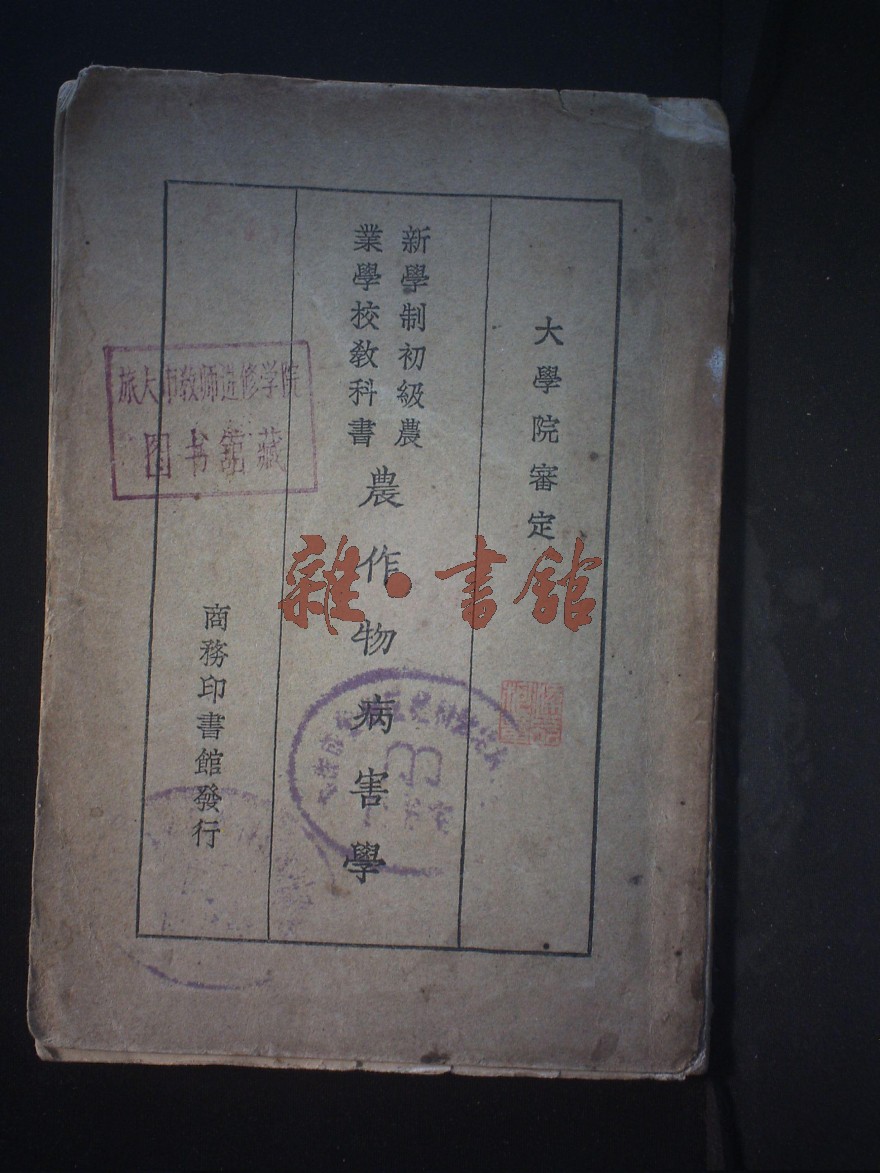 大學院審定
新學制初級農
業學校教科書
農作物病害學
商務印書館發行
旅大市教师进修学院
图书舘藏
雜·書館